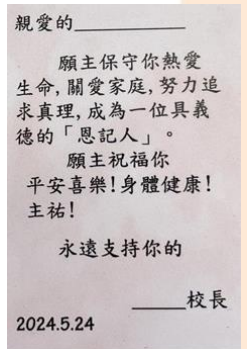 親愛的__________
願主保守你熱愛
生命,關愛家庭,努力追
求真理,成為一位具義
德的「恩記人」。
願主祝福你
平安喜樂!身體健康!
主祐!
永遠支持你的
_____校長
2024.5.24